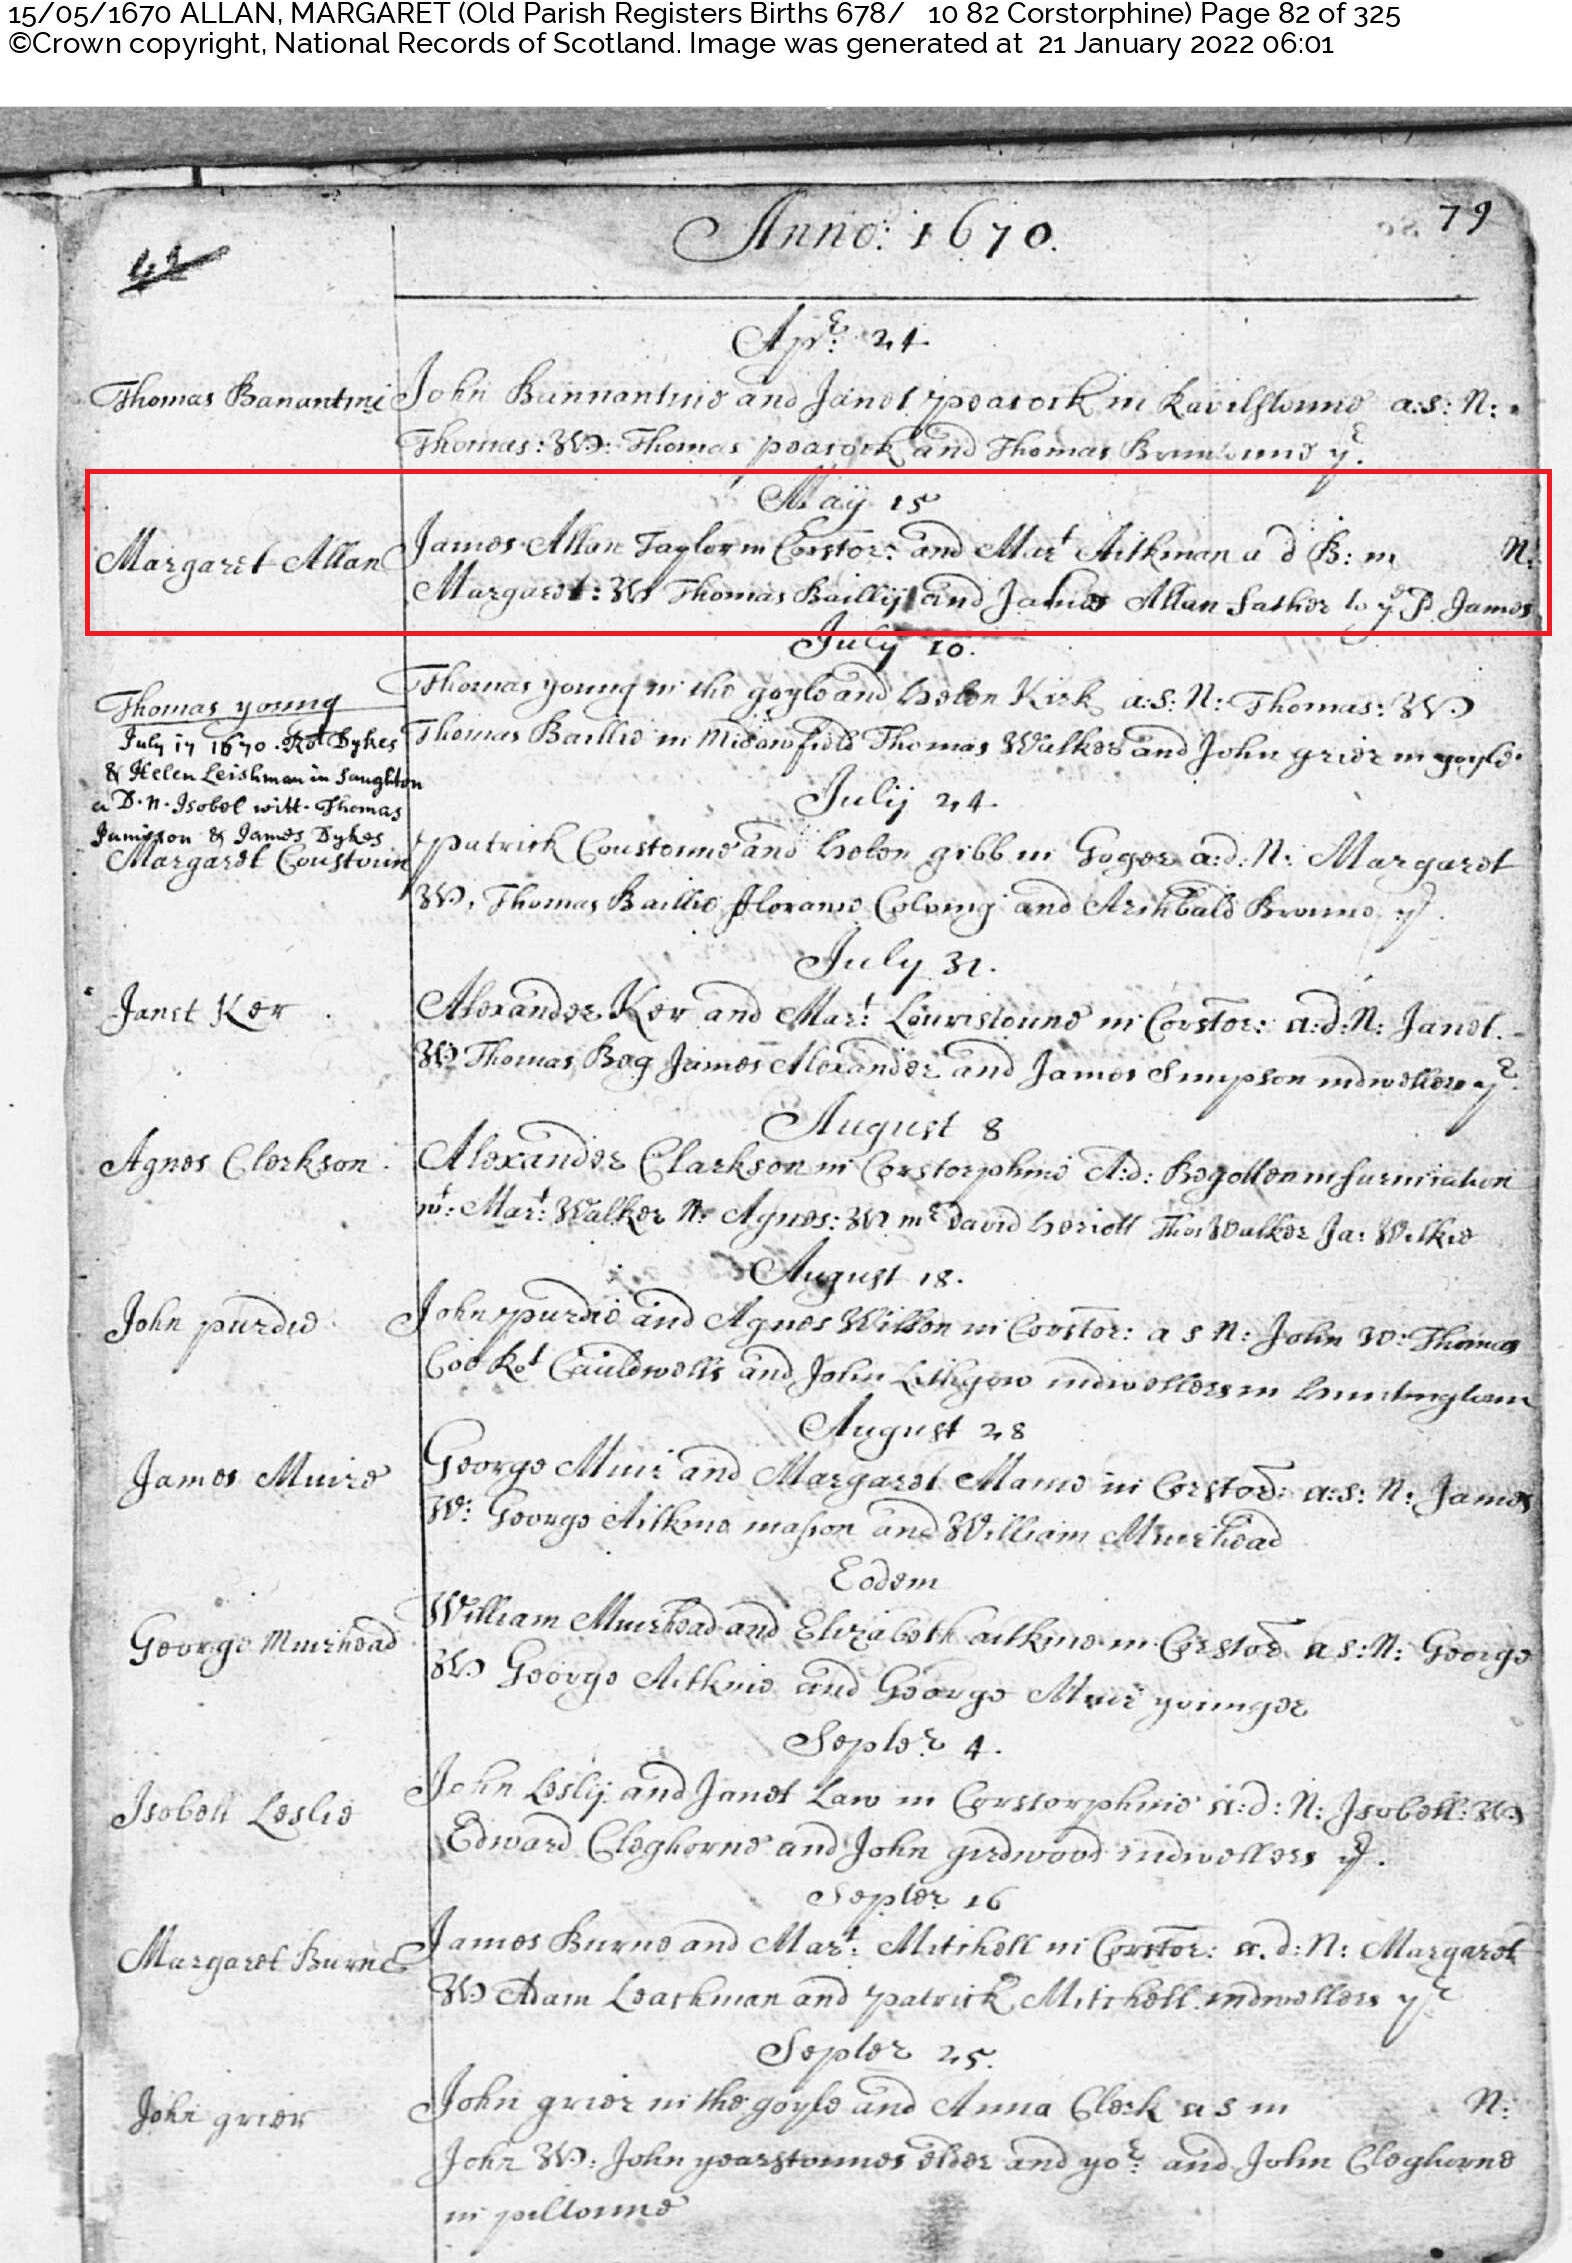 15/05/1670 ALLAN, MARGARET (Old Parish Registers Births 678/ 10 82 Corstorphine) Page 82 of 325
©Crown copyright, National Records of Scotland. Image was generated at 21 January 2022 06:01
79
Anno: 1670.
Apr: 24
Thomas Banantine John Bannantine and Janet peacock in a:s: N:
Thomas: W: Thomas peacock and Thomas yr.
May 15
Margaret Allan James Allan Taylor in Corstor: and Mart Aitkman a d B: in N:
Margaret: W Thomas Bailly and James Allan father to ye sd James
July 10.
Thomas young Thomas young in the gogle and helen Kirk a:s: N: Thomas: W
Thomas Baillie in Thomas Walker and John grier in gogle.
July 17 1670. Rot Dykes
& Helen Leishman in Saughton
a D. N. Isobel witt. Thomas
Jamisson & James Dykes
July 24.
Margaret Coustoun patrick Coustoune and helen gibb in Goger a:d: N: Margaret
W. Thomas Baillie and Archbald Broune yr.
July 31.
Janet Ker Alexander Ker and Mart: in Corstor: a:d: N: Janet.
W Thomas Beg James Alexander and James Simpson indwellers yr.
August 8
Agnes Clerkson Alexander Clarkson in Corstorphine A:d: Begotten in furnication
wt: Mart: Walker N: Agnes: W mr David heriott Tho: Walker Ja: Wilkie
August 18.
John purdie John purdie and Agnes Wilson in Corstor: a s N: John W: Thomas
Rot and John Lithgow indwellers in
August 28
James Muire George Muir and Margaret in Corstor: a:s: N: James
W: George Aitkine masson and William Muirhead
Eodem
George Muirhead William Muirhead and Elizabeth aitkine in Corstor a s: N: George
W George Aitkine and George Muir younger
Septer 4.
Isobell Leslie John Lesly and Janet Law in Corstorphine a:d: N: Isobell: W
Edward Cleghorne and John girdwood indwellers yr.
Septer 16
Margaret Burne James Burne and Mart: Mitchell in Corstor: a.d: N: Margaret
W Adam Leashman and patrick Mitchell indwellers yr
Septer 25.
John grier John grier in the gogle and Anna Clerk a s in N:
John W: John elder and yor: and John Cleghorne
in